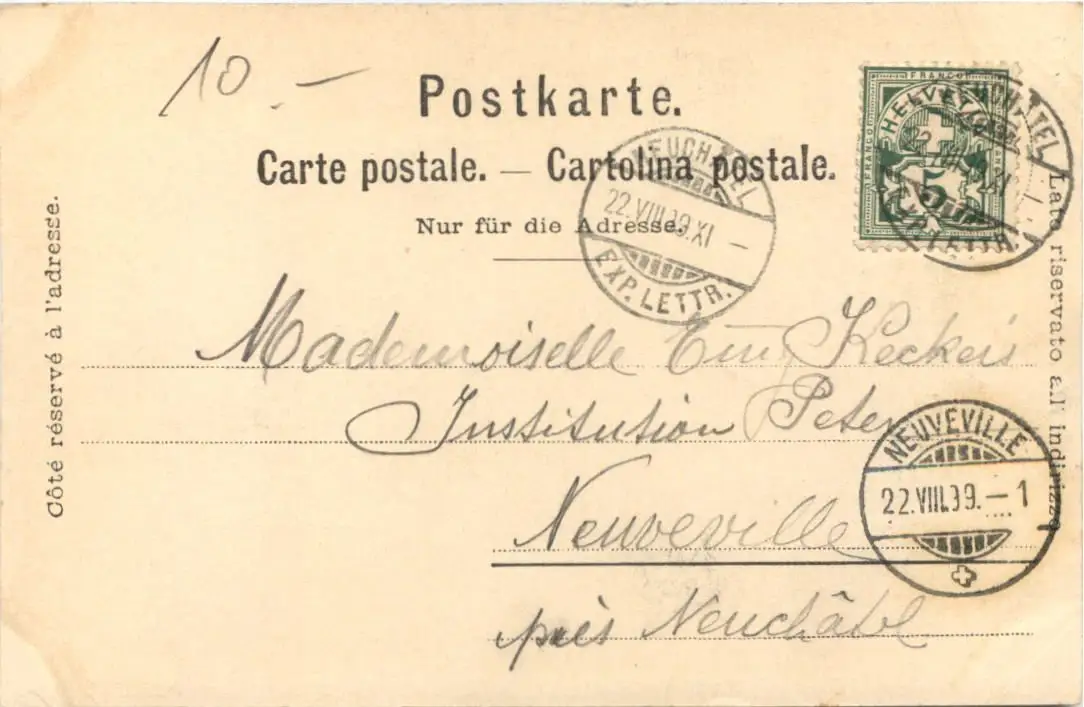 10.-
Postkarte.
Carte postale. — Cartolina postale.
Nur für die Adresse.
Côté réservé à l'adresse.
Lato riservato all' indirizzo
FRANCO
FRANCO
HELVETIA
5
NEUCHATEL
22.VIII.99.XI
EXP. LETTR.
NEUCHATEL
22.VIII. XI
EXP. LETTR.
Mademoiselle Keckeis
Institution Peter
Neuveville
près Neuchâtel
NEUVEVILLE
22.VIII.99.-1